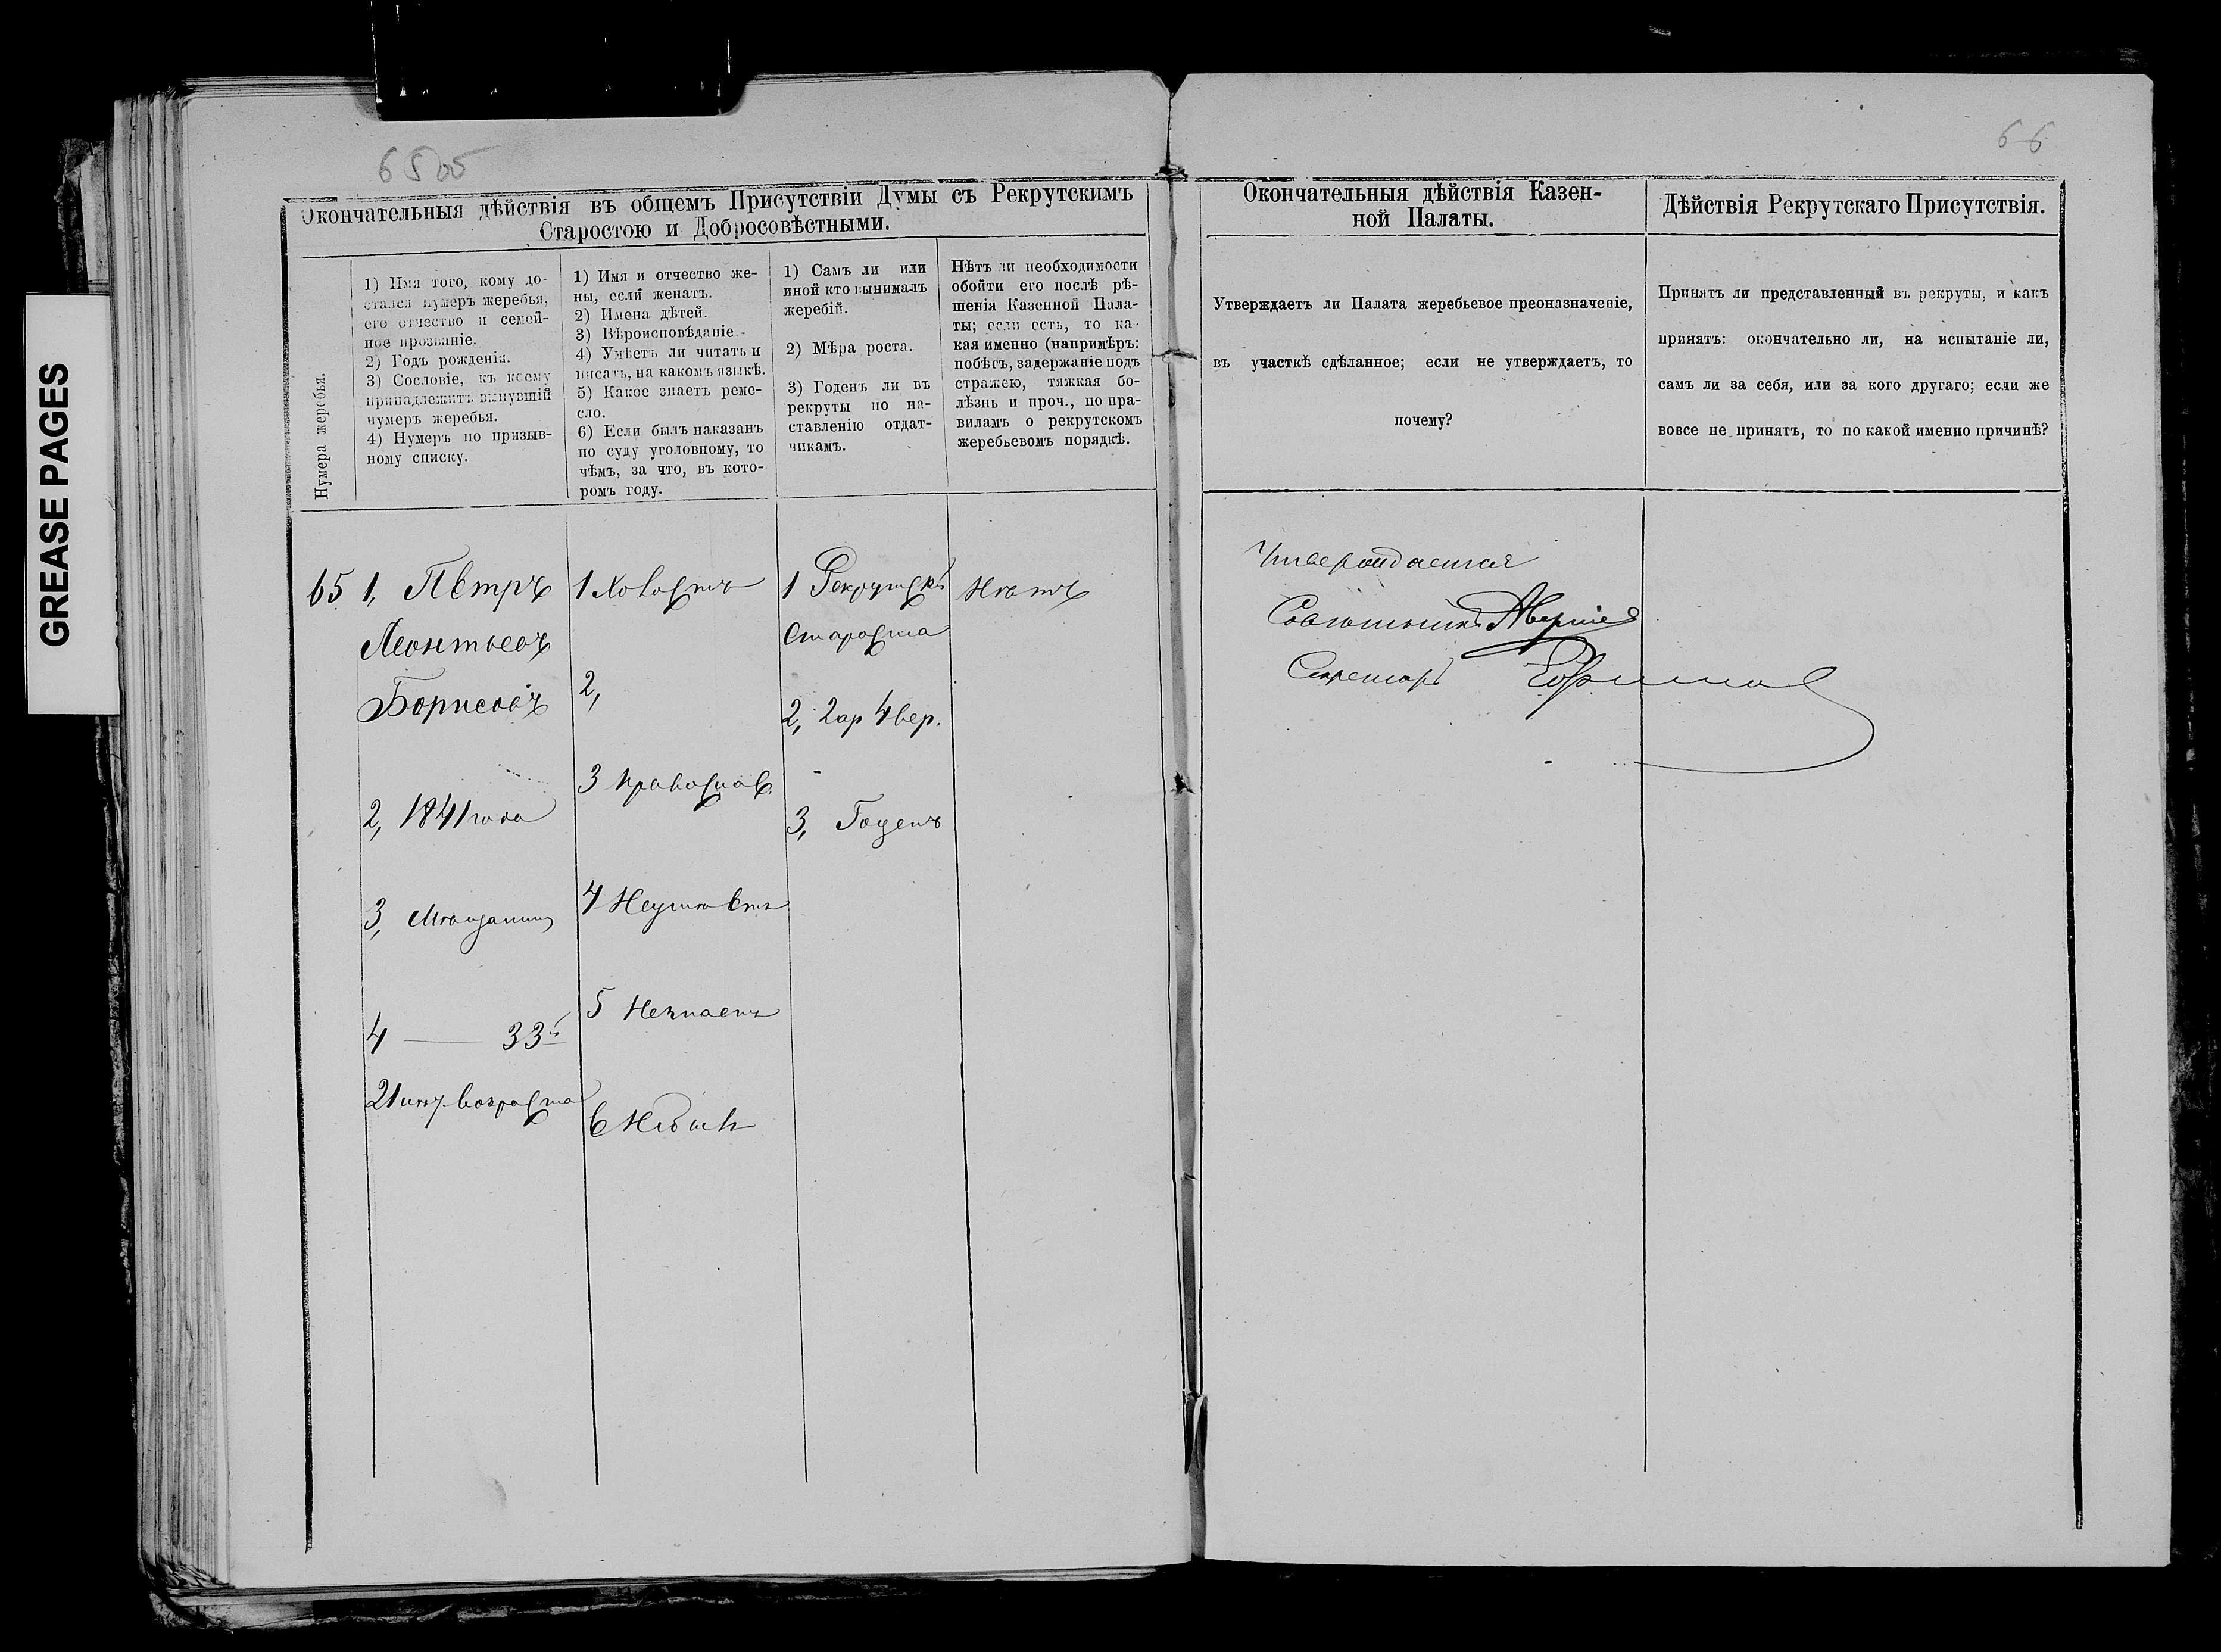 GREASE PAGES
66
Окончательныя дѣйствія въ общемъ Присутствіи Думы съ Рекрутскимъ
Старостою и Добросовѣстными.
Нумера жеребья.
1) Имя того, кому до-
стался нумеръ жеребья,
его отчество и семей-
ное прозваніе.
2) Годъ рожденія.
3) Сословіе, къ коему
принадлежитъ вынувшій
нумеръ жеребья.
4) Нумеръ по призыв-
ному списку.
1) Имя и отчество же-
ны, если женатъ.
2) Имена дѣтей.
3) Вѣроисповѣданіе.
4) Умѣетъ ли читать и
писать, на какомъ языкѣ.
5) Какое знаетъ реме-
сло.
6) Если былъ наказанъ
по суду уголовному, то
чѣмъ, за что, въ кото-
ромъ году.
1) Самъ ли или
иной кто вынималъ
жеребій.
2) Мѣра роста.
3) Годенъ ли въ
рекруты по на-
ставленію отдат-
чикамъ.
Нѣтъ ли необходимости
обойти его послѣ рѣ-
шенія Казенной Пала-
ты; если есть, то ка-
кая именно (напримѣръ:
побѣгъ, задержаніе подъ
стражею, тяжкая бо-
лѣзнь и проч., по пра-
виламъ о рекрутскомъ
жеребьевомъ порядкѣ.
65
1, Петръ
Леонтьевъ
Борисовъ
2, 1841 года
3, Мѣщанинъ
4 — 33й
21 возраста
1 Холостъ
2,
3 Православ.
4 Неумѣетъ
5 Незнаетъ
6 Небылъ
1 Рекрутскій
Староста
2, 2 ар 4 вер.
3, Годенъ
Нѣтъ
Окончательныя дѣйствія Казен-
ной Палаты.
Утверждаетъ ли Палата жеребьевое преоназначеніе,
въ участкѣ сдѣланное; если не утверждаетъ, то
почему?
Утверждается
Совѣтникъ
Секретарь
Дѣйствія Рекрутскаго Присутствія.
Принятъ ли представленный въ рекруты, и какъ
принятъ: окончательно ли, на испытаніе ли,
самъ ли за себя, или за кого другаго; если же
вовсе не принятъ, то по какой именно причинѣ?